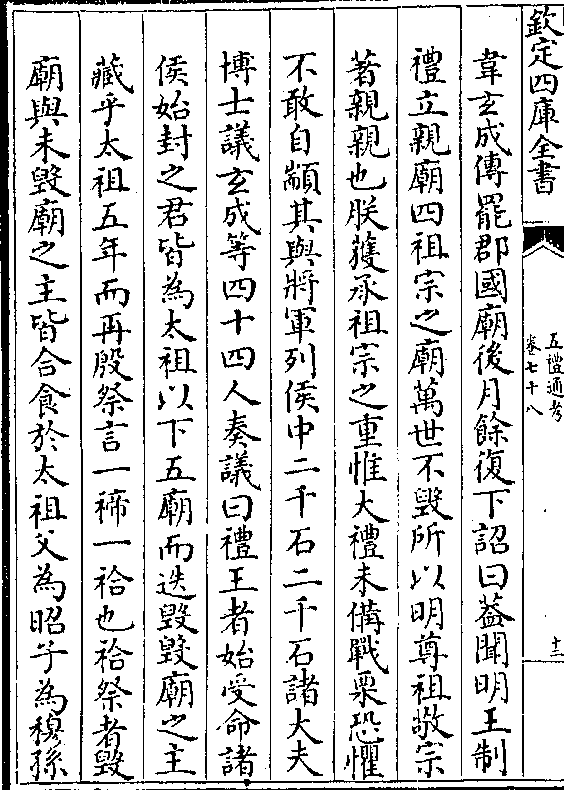 欽定四庫全書
五禮通考
卷七十八
十二
韋玄成傳罷郡國廟後月餘復下詔曰葢聞明王制
禮立親廟四祖宗之廟萬世不毀所以明尊祖敬宗
著親親也朕獲承祖宗之重惟大禮未備戰栗恐懼
不敢自顓其與將軍列侯中二千石二千石諸大夫
博士議玄成等四十四人奏議曰禮王者始受命諸
侯始封之君皆為太祖以下五廟而迭毀毀廟之主
藏乎太祖五年而再殷祭言一禘一祫也祫祭者毀
廟與未毀廟之主皆合食於太祖父為昭子為穆孫